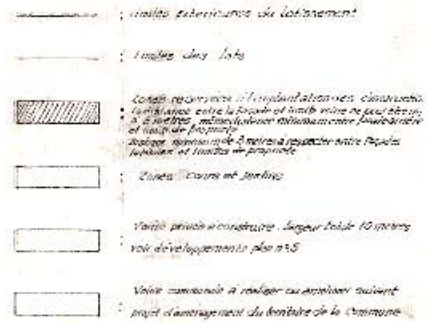 : limites extérieures du lotissement
: limites des lots
: Zones réservées à l'implantation des
la distance entre la façade et limite
6 mètres, même distance minimum entre
et limite de propriété
minimum de 8 mètres à respecter entre façades
et limites de propriété
: Zones Cours et Jardins
: Voirie privée à construire. largeur totale 10 mètres
voir développements plan n°5
: Voirie communale à réaliser ou améliorer suivant
projet d'aménagement du territoire de la Commune